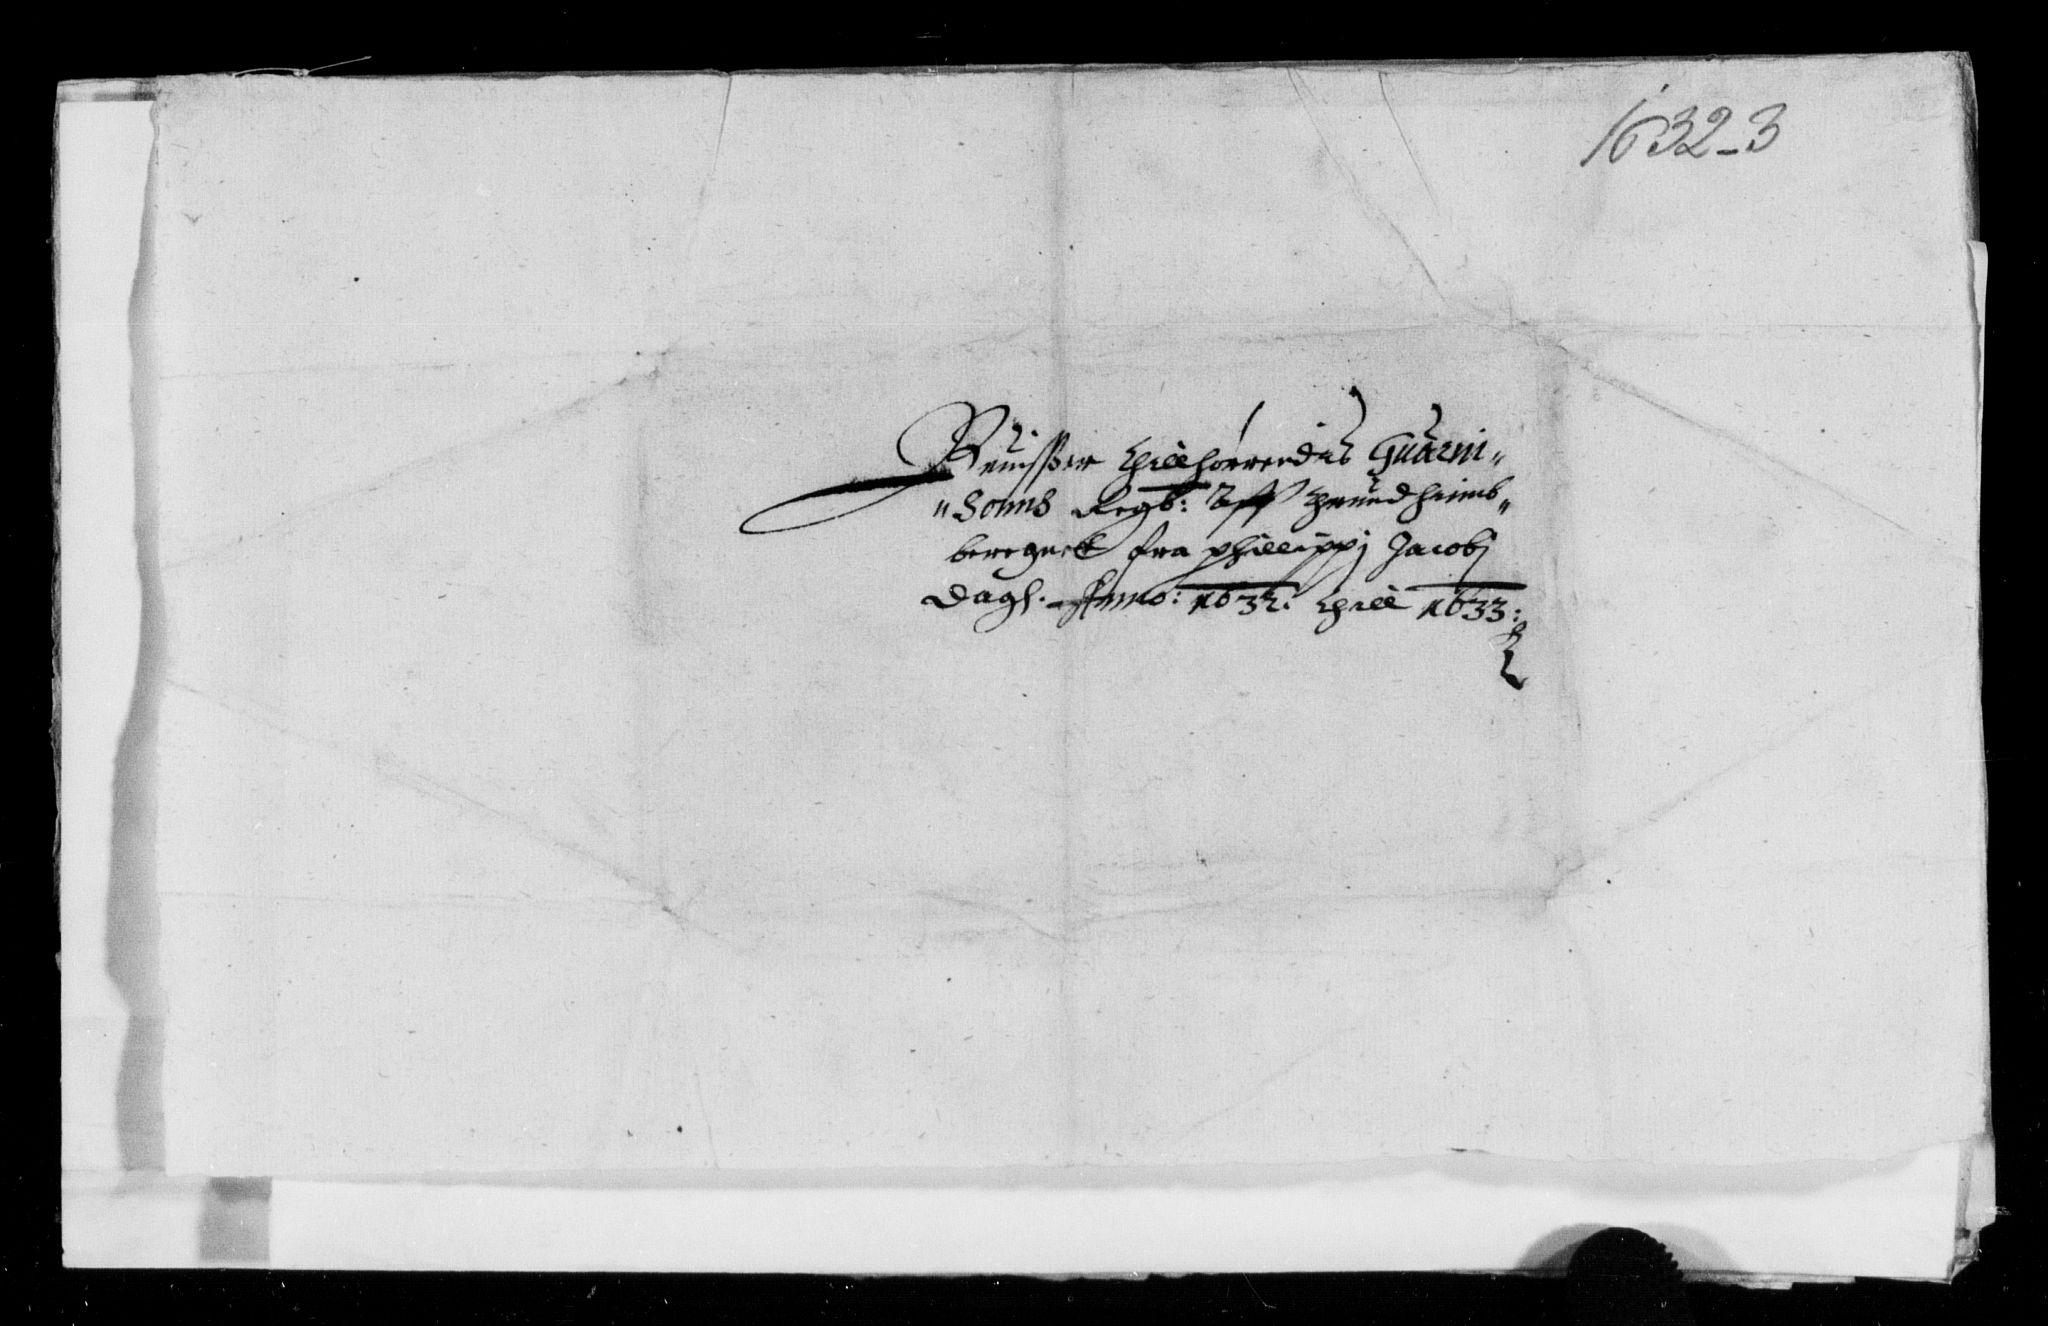 1632-3
Beuisser thillhørrendes Guarni„
„sonns Regb: Aff thrundheimb„
beregnet fra phillippj Jacobj
dags. Anno: 1632. thill 1633: